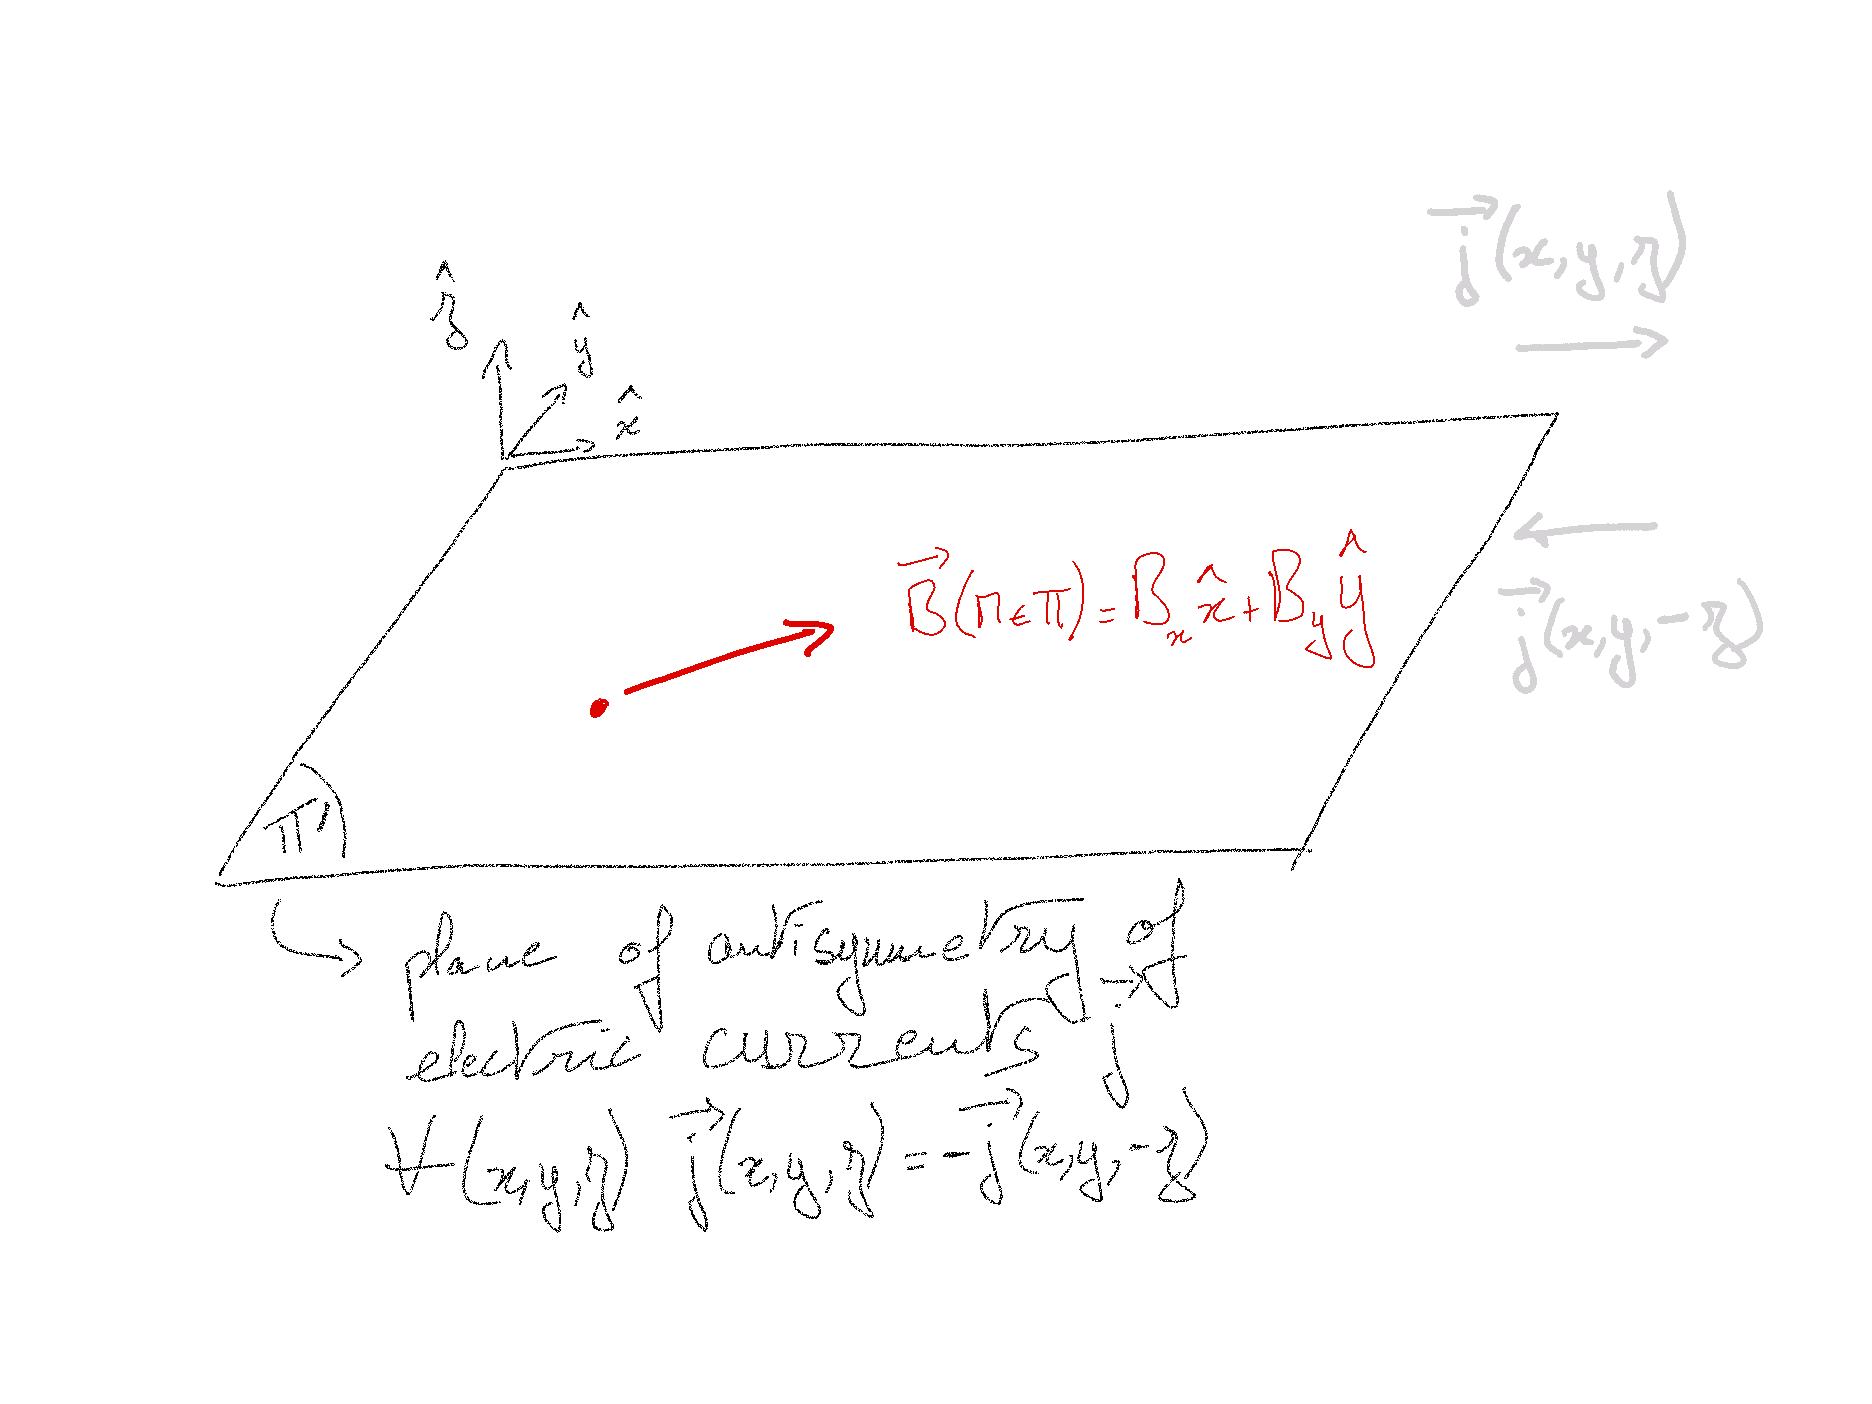 $\vec{j}(x,y,z)$
$\hat{z}$
$\hat{y}$
$\hat{x}$
$\vec{B}(M \in \Pi) = B_x \hat{x} + B_y \hat{y}$
$\vec{j}(x,y,-z)$
$\Pi'$
plane of antisymmetry of
electric currents $\vec{j}$
$\forall (x,y,z) \; \vec{j}(x,y,z) = -\vec{j}(x,y,-z)$